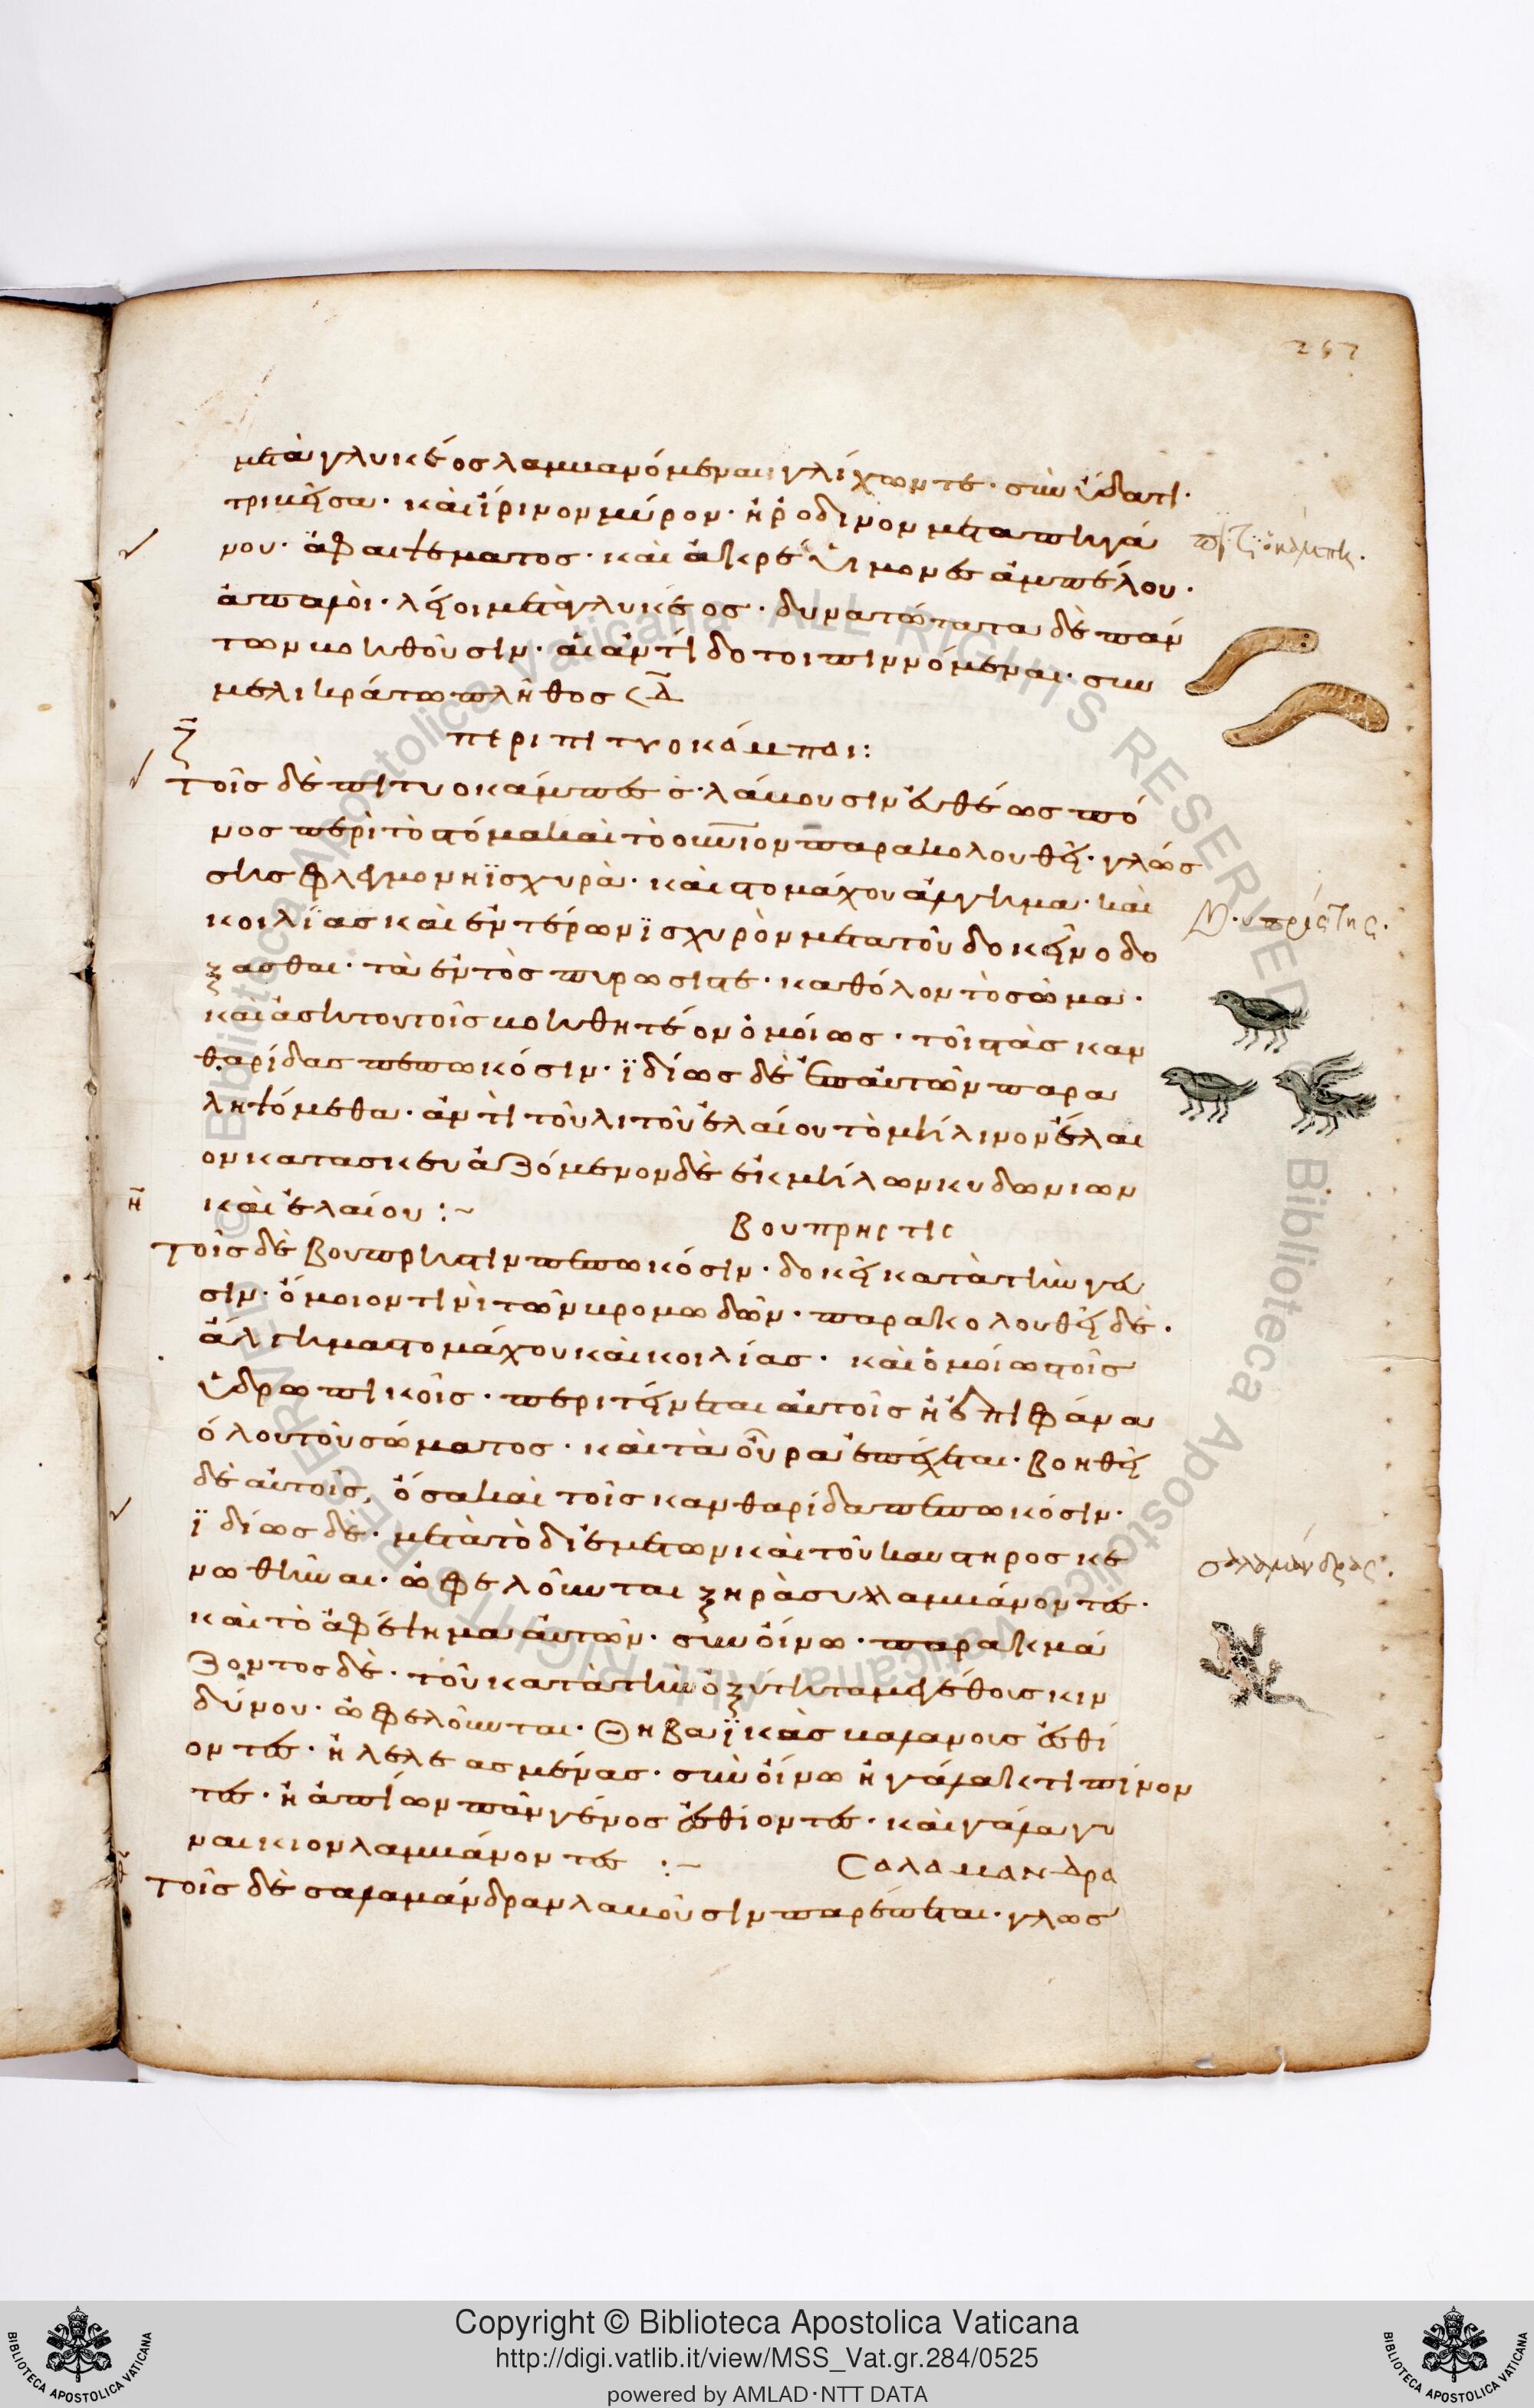 257
μετὰ γλυκέος λαμβανόμεναι γλίχων τε· σὺν ὕδατι·
τριβεῖσα· καὶ ἴρινον μύρον· ἢ ῥόδινον μετὰ πηγά
νου· ἀφεψέματος· καὶ ἄκρε
ἀμπέλου·
ἁπαλοὶ· λεῖοι μετὰ γλυκέος· δυνατώτατα δὲ πάν
των βοηθοῦσιν· αἱ ἀντίδοτοι πινόμεναι· σὺν
μελικράτω πλῆθος
ζ
περι πιτυοκάμπαι:
τοῖς δὲ πιτυοκάμπας λάβουσιν εὐθέως πό
νος περὶ τὸ στόμα καὶ τὸ οὐρανίον παρακολουθεῖ· γλώσ
σης φλεγμονὴ ϊσχυρὰ· καὶ στομάχου ἄλγημα· καὶ
κοιλίας καὶ ἐντέρων ϊσχυρὸν μετὰ τοῦ δοκεῖν ὀδο
ξασθαι· τὰ ἐντὸς πύρωσίς τε· καθόλον τὸ σῶμα·
καὶ ἄση τούτοις βοηθητέον ὁμοίως· τοῖς τὰς καν
θαρίδας πεπωκόσιν· ϊδίως δὲ ἐπ αὐτῶν παρα
ληψόμεθα· ἀντὶ τοῦ λιτοῦ ἐλαίου τὸ μήλινον ἔλαι
ον κατασκευαζόμενον δὲ ἐκ μήλων κυδωνίων
καὶ ἐλαίου :~
η
βουπρηστις
τοῖς δὲ βούπρηστιν πεπωκόσιν· δοκεῖ κατὰ τὴν γεῦ
σιν· ὅμοιόν τι νίτρων βρομωδῶν· παρακολουθεῖ δὲ·
ἄλγημα στομάχου καὶ κοιλίας· καὶ ὁμοίως τοῖς
ὑδρωπικοῖς· περιτείνεται αὐτοῖς ἡ ἐπιφάνα
ὅλου τοῦ σώματος· καὶ τὰ οὖρα ἐπέχεται· βοηθεῖ
δὲ αὐτοῖς, ὅσα καὶ τοῖς κανθαρίδα πεπωκόσιν·
ϊδίως δὲ· μετὰ τὸ δι ἐμέτων καὶ τοῦ κλυστῆρος κε
νωθῆναι· ὠφελοῦνται ξηρὰ σῦκα λαμβάνοντες·
καὶ τὸ ἀφέψημα αὐτῶν· σὺν οἴνω· παρακμά
ζοντος δὲ· τοῦ κατὰ τὴν ὀξύτητα μεγέθους κιν
δύνου· ὠφελοῦνται· Θηβαϊκὰς βαλάνους ἐσθί
οντες· ἢ λελεασμένας· σὺν οἴνω ἢ γάλακτι πίνον
τες· ἢ ἀπίων πᾶν γένος ἐσθίοντες· καὶ γάλα γυ
ναικίον λαμβάνοντες :~
Σαλαμανδρα
τοῖς δὲ σαλαμάνδραν λαβοῦσιν παρέπεται· γλωσ
σαλαμάνδρας.
Copyright © Biblioteca Apostolica Vaticana
http://digi.vatlib.it/view/MSS_Vat.gr.284/0525
powered by AMLAD·NTT DATA
BIBLIOTECA APOSTOLICA VATICANA
BIBLIOTECA APOSTOLICA VATICANA
© Biblioteca Apostolica Vaticana ALL RIGHTS RESERVED
© Biblioteca Apostolica Vaticana ALL RIGHTS RESERVED